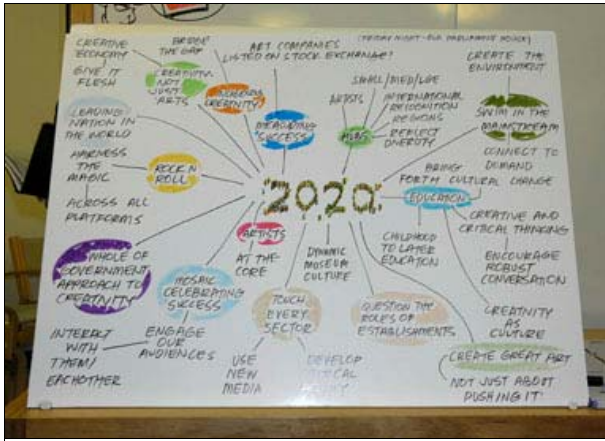 CREATIVE
ECONOMY
GIVE IT
FLESH
BRIDGE
THE GAP
CREATIVITY
NOT
JUST
ARTS
CREATIVITY
ART COMPANIES
LISTED ON STOCK EXCHANGE!
MEASURING
SUCCESS
(FRIDAY NIGHT - OLD PARLIAMENT HOUSE)
SMALL/MED/LGE
ARTISTS
INTERNATIONAL
RECOGNITION
REGIONS
REFLECT
DIVERSITY
HUBS
CREATE THE
ENVIRONMENT
SWIM IN THE
MAINSTREAM
CONNECT TO
DEMAND
LEADING
NATION IN
THE WORLD
HARNESS
THE
MAGIC
ACROSS ALL
PLATFORMS
ROCK N
ROLL
2020
BRING
FORTH CULTURAL CHANGE
EDUCATION
CREATIVE AND
CRITICAL THINKING
ENCOURAGE
ROBUST
CONVERSATION
CHILDHOOD
TO LATER
EDUCATION
CREATIVITY
AS
CULTURE
WHOLE OF
GOVERNMENT
APPROACH TO
CREATIVITY
ARTISTS
AT THE
CORE
DYNAMIC
MUSEUM
CULTURE
MOSAIC
CELEBRATING
SUCCESS
ENGAGE
OUR
AUDIENCES
INTERACT
WITH
THEM/
EACHOTHER
TOUCH
EVERY
SECTOR
USE
NEW
MEDIA
DEVELOP
QUESTION THE
ROLES OF
ESTABLISHMENTS
CREATE GREAT ART
NOT JUST ABOUT
PUSHING IT!